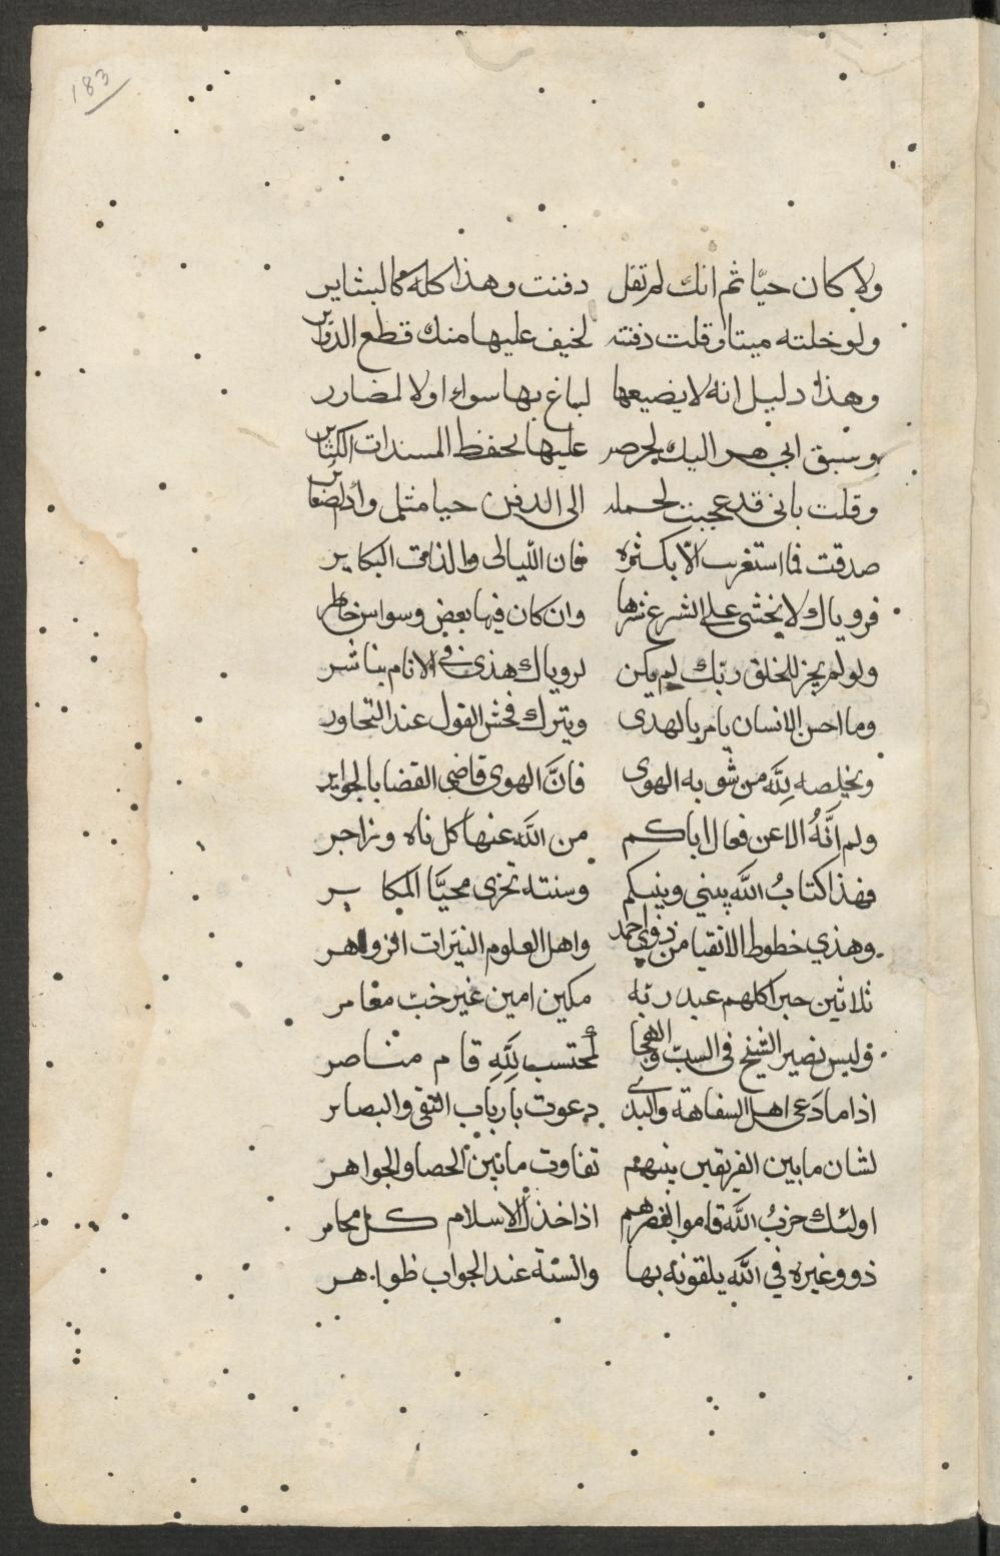 183
ولا كان حيّا ثم انك لم تقل دفنت وهذا كله كالبشاير
ولو خلته ميتا وقلت دفنته لخيف عليها منك قطع الدواير
وهذا دليل انه لا يضيعها لباغ بها سواء اولا لمضارر
وسبق ابي اليك لحرصه عليها لحفظ المسندات الكثاير
وقلت باني قد عجبت لحمله الى الدفن حيا مثل
صدقت فما استغرب الا بكثره فان الليالى والذاهى البكاير
فروياك لا يخشى على الشرع شرها وان كان فيها بعض وسواس خاطر
ولو لم يجز للخلق ربك لم يكن لروياك هذى فى الانام بناشر
وما احسن الانسان يامر بالهدى ويترك فحش القول عند التحاور
ويخلصه لله من شوبه الهوى فانّ الهوى قاضى القضا بالجواير
ولم انّهُ الا عن فعال اباكم من الله عنها كل ناه وزاجر
فهذا كتابُ الله بينى وبينكم وسنته تخزى محيّا المكابر
وهذي خطوط الاتقيا من ذوي احمد واهل العلوم النيّرات الزواهر
ثلاثين حبرا كلهم عبد ربّه مكين امين غير خبّ مغامر
وليس نصير الشيخ فى السبّ والهجا لمحتسب للّهِ قام مناصر
اذا ما دَعى اهل السفاهة والبذى دعوت بارباب التقى والبصاير
لشان ما بين الفريقين بينهم تفاوت ما بين الحصا والجواهر
اولئك حزبُ الله قاموا لنصرهم اذا خذل الاسلام كل مخامر
ذوو غيره في الله يلقونه بها والسنة عند الجواب ظواهر